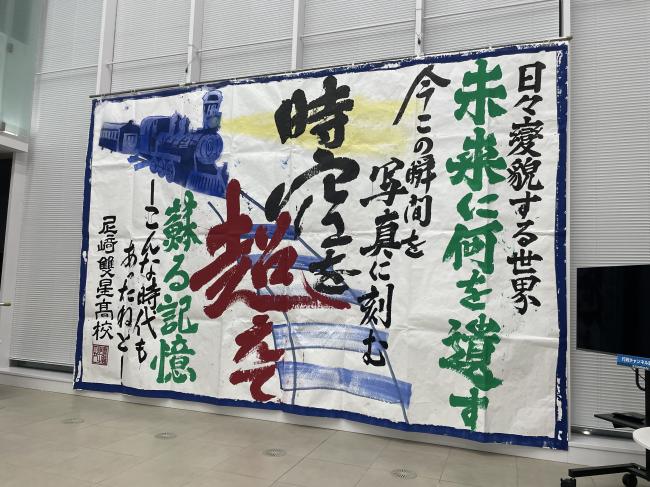 日々変貌する世界
未来に何を遺す
今この瞬間を
写真に刻む
時空を
超えて
蘇る記憶
―こんな時代も
あったねと―
尼崎雙星高校